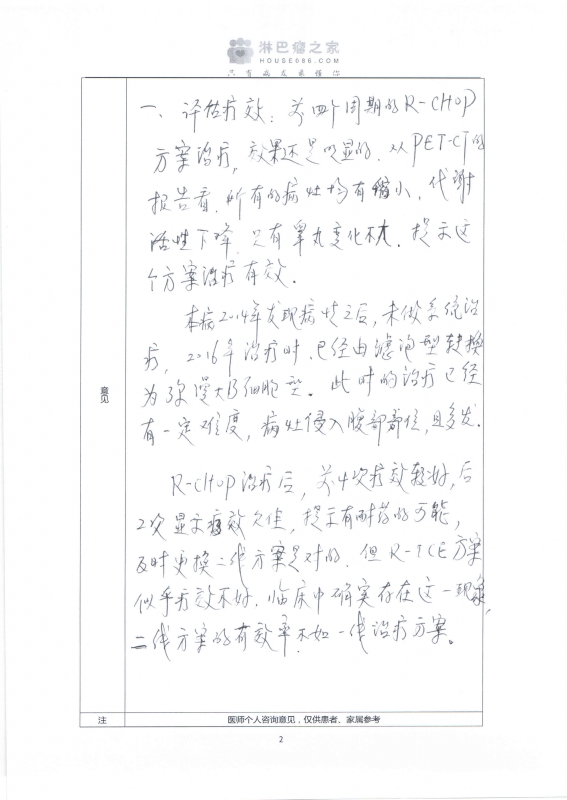 淋巴瘤之家
HOUSE086.COM
只有病友最懂你
一、评估疗效：前四个周期的R-CHOP
方案治疗，效果还是明显的．从PET-CT的
报告看，所有的病灶均有缩小，代谢
活性下降，只有睾丸变化不大．提示这
个方案治疗有效．
本病2014年发现病情之后，未做系统治
疗，2016年治疗时，已经由滤泡型转换
为弥漫大B细胞型．此时的治疗已经
有一定难度，病灶侵入腹部部位，且多发．
R-CHOP治疗后，前4次疗效较好，后
2次显示疗效欠佳，提示有耐药的可能，
及时更换二线方案是对的．但R-ICE方案
似乎疗效不好．临床中确实存在这一现象，
二线方案的有效率不如一线治疗方案。
意见
注
医师个人咨询意见，仅供患者、家属参考
2